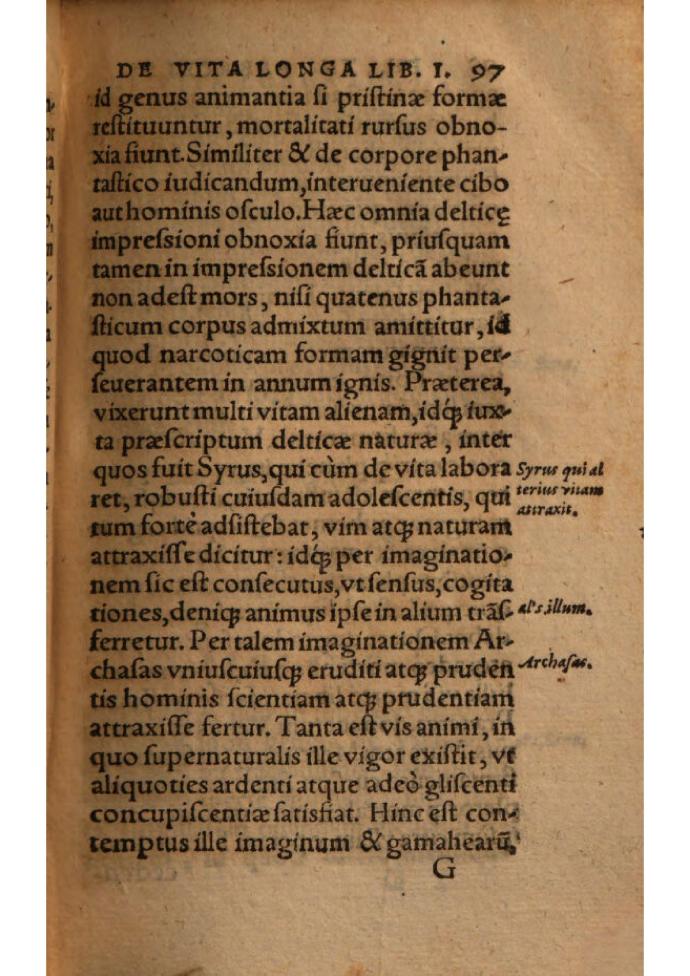 DE VITA LONGA LIB. I. 97
id genus animantia ſi priſtinæ formæ
reſtituuntur, mortalitati rurſus obno-
xia fiunt. Similiter & de corpore phan-
taſtico iudicandum, interueniente cibo
aut hominis oſculo. Hæc omnia delticę
impreſſioni obnoxia fiunt, priuſquam
tamen in impreſſionem delticã abeunt
non adeſt mors, niſi quatenus phanta-
ſticum corpus admixtum amittitur, id
quod narcoticam formam gignit per-
ſeuerantem in annum ignis. Præterea,
vixerunt multi vitam alienam, idq́ꝫ iux-
ta præſcriptum delticæ naturæ, inter
quos fuit Syrus, qui cùm de vita labora
ret, robuſti cuiuſdam adoleſcentis, qui
tum fortè adſiſtebat, vim atqꝫ naturam
attraxiſſe dicitur: idq́ꝫ per imaginatio-
nem ſic eſt conſecutus, vt ſenſus, cogita
tiones, deniqꝫ animus ipſe in alium trãſ-
ferretur. Per talem imaginationem Ar-
chaſas vniuſcuiuſqꝫ eruditi atqꝫ pruden
tis hominis ſcientiam atqꝫ prudentiam
attraxiſſe fertur. Tanta eſt vis animi, in
quo ſupernaturalis ille vigor exiſtit, vt
aliquoties ardenti atque adeò gliſcenti
concupiſcentiæ ſatisfiat. Hinc eſt con-
temptus ille imaginum & gamahearũ,
G
Syrus qui al
terius vitam
attraxit.
al's, illum.
Archaſas.